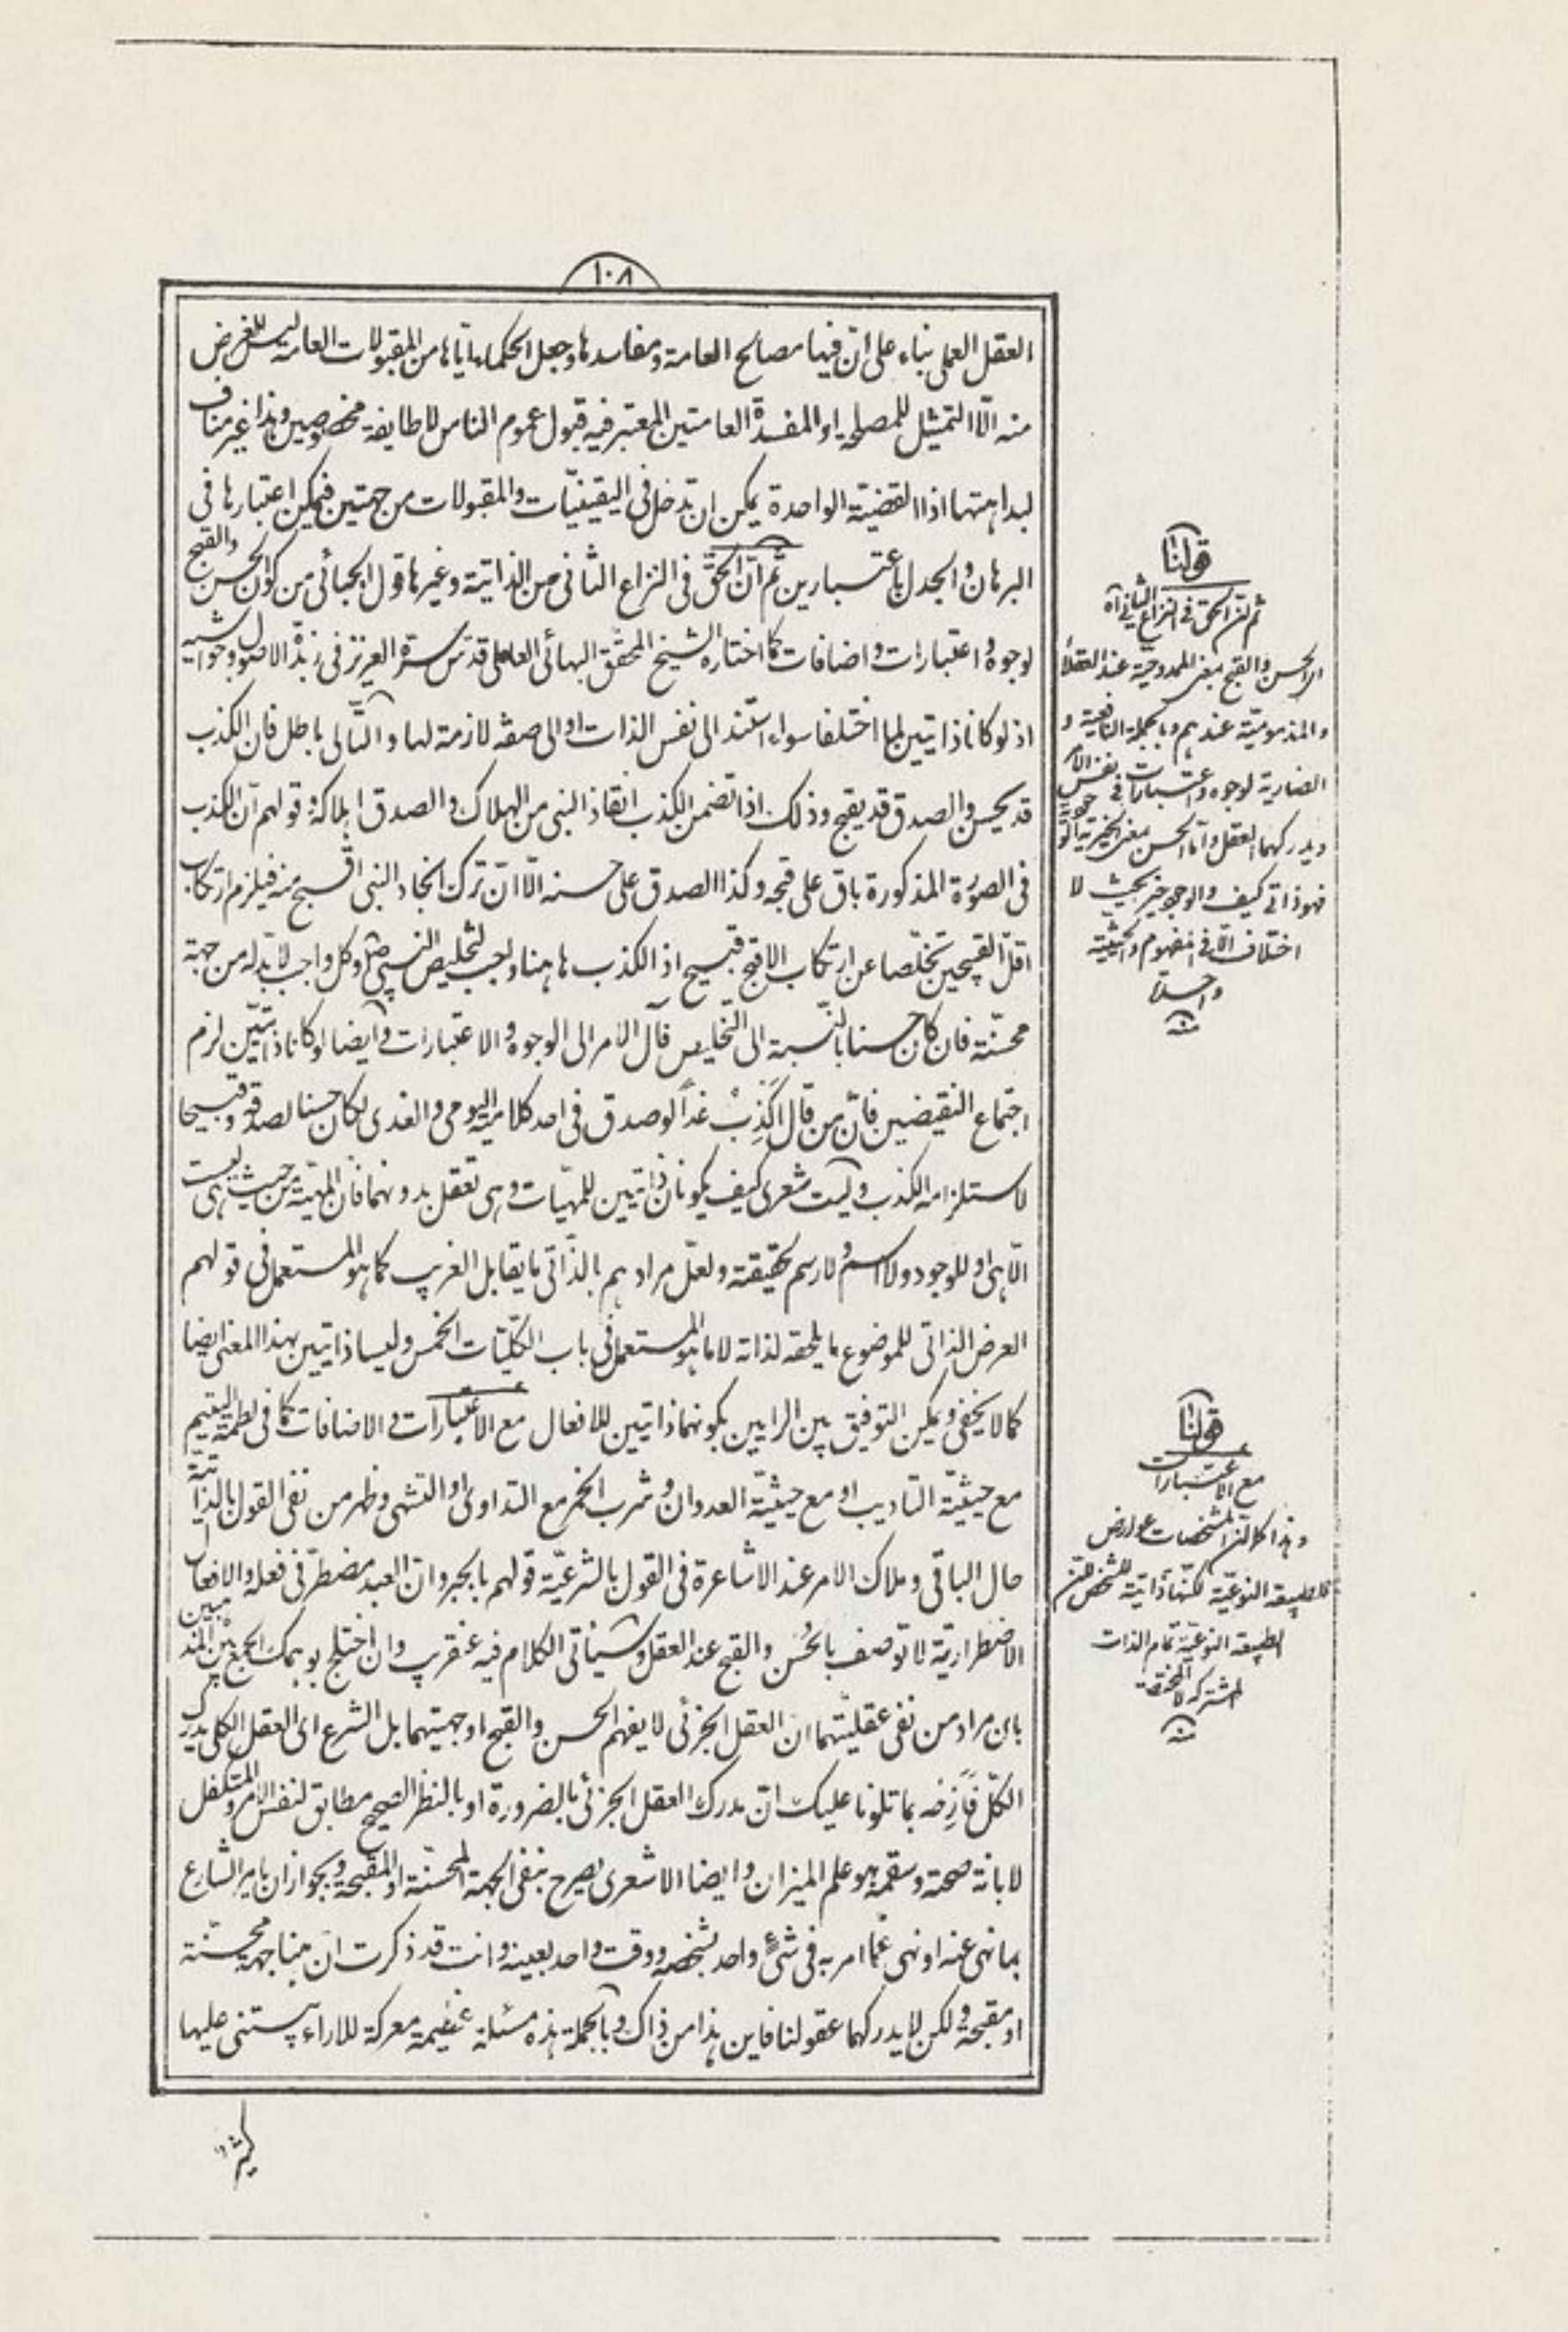 ١٠٨
العقل العملی بناء علی ان فیها مصالح العامة و مفاسدها و جعل الحکماء ایاها من المقبولات العامة لیس الغرض
منه الا التمثیل للمصلحة او المفسدة العامتین المعتبر فیه قبول عموم الناس لا طایفة مخصوصین و هذا غیر مناف
لبداهتها اذ القضیّة الواحدة یمکن ان تدخل فی الیقینیّات و المقبولات من جهتین فیمکن اعتبارها فی
البرهان و الجدل باعتبارین ثم انّ الحقّ فی النزاع الثانی من الذاتیّة و غیرها قول الجبائی من کون الحسن و القبح
لوجوه و اعتبارات و اضافات کما اختاره الشیخ المحقّق البهائی العاملی قدّس سرّه العزیز فی زبدة الاصول و حواشیه
اذ لو کانا ذاتیین لما اختلفا سواء استند الی نفس الذات او الی صفة لازمة لها و التّالی باطل فان الکذب
قد یحسن و الصدق قد یقبح و ذلک اذا تضمن الکذب انقاذ النبی من الهلاک و الصدق اهلاکه و قولهم انّ الکذب
فی الصورة المذکورة باق علی قبحه و کذا الصدق علی حسنه الّا انّ ترک انجاد النبی اقبح منه فیلزم ارتکاب
اقلّ القبیحین تخلّصا عن ارتکاب الاقبح قبیح اذ الکذب هاهنا واجب لتخلیص النبی مثلا و کل واجب لا بدّ له من جهة
محسّنة فان کان حسنا بالنّسبة الی التّخلیص فآل الامر الی الوجوه و الاعتبارات و ایضا لو کانا ذاتیّین لزم
اجتماع النقیضین فانّ من قال اکذِبُ غداً لو صدق فی احد کلامیه الیومی و الغدی لکان حسنا لصدقه و قبیحا
لاستلزامه الکذب و لیت شعری کیف یکونان ذاتیین للمهیّات و هی تعقل بدونهما فان المهیّة من حیث هی لیست
الّا هی و للوجود و لا اسم و لا رسم لحقیقته و لعلّ مرادهم بالذّاتی ما یقابل الغریب کما هو المستعمل فی قولهم
العرض الذاتی للموضوع ما یلحقه لذاته لا ما هو المستعمل فی باب الکلّیّات الخمس و لیسا ذاتیین بهذا المعنی ایضا
کما لا یخفی و یمکن التوفیق بین الرایین بکونهما ذاتیین للافعال مع الاعتبارات و الاضافات کما فی لطمة الیتیم
مع حیثیّة التادیب او مع حیثیّة العدوان و شرب الخمر مع التداوی او التشهی و ظهر من نفی القول بالذاتیّة
حال الباقی و ملاک الامر عند الاشاعرة فی القول بالشرعیّة قولهم بالجبر و ان العبد مضطرّ فی فعله و الافعال
الاضطراریّة لا توصف بالحُسن و القبح عند العقل و سیأتی الکلام فیه عنقریب و ان اختلج بوهمک الجمع بین المذهبین
بان مراد من نفی عقلیّتهما ان العقل الجزئی لا یفهم الحسن و القبح او جهتیهما بل الشرع ای العقل الکلی یدرک
الکلّ فأزِحْه بما تلونا علیک انّ مدرک العقل الجزئی بالضرورة او بالنظر الصحیح مطابق لنفس الامر و المتکفل
لابانة صحته و سقمه هو علم المیزان و ایضا الاشعری یصرح بنفی الجهة المحسّنة او المقبحة و بجواز ان یامر الشارع
بما نهی عنه او نهی عمّا امر به فی شیء واحد بشخصه و وقت واحد بعینه و انت قد ذکرت ان هنا جهة محسّنة
او مقبحة و لکن لا یدرکهما عقولنا فاین هذا من ذاک و بالجملة هذه مسئلة عظیمة معرکة للاراء یبتنی علیها
کثیر
قولنا
ثم انّ الحق فی النزاع الثانی آه
ای الحسن و القبح بمعنی الممدوحیة عند العقلاء
و المذمومیّة عندهم و بالجملة النافعیة و
الضاریة لوجوه و اعتبارات فی نفس الامر
و یدرکهما العقل و امّا الحسن بمعنی الخیریة الوجودیة
فهو ذاتی کیف و الوجود خیر بحیث لا
اختلاف الّا فی المفهوم و الحیثیّة
واحدة
منه
قولنا
مع الاعتبارات
و هذا کما انّ المشخصات عوارض
للطبیعة النوعیّة لکنّها ذاتیة للشخص لان
الطبیعة النوعیّة تمام الذات
المشترکة لا المختصة
منه